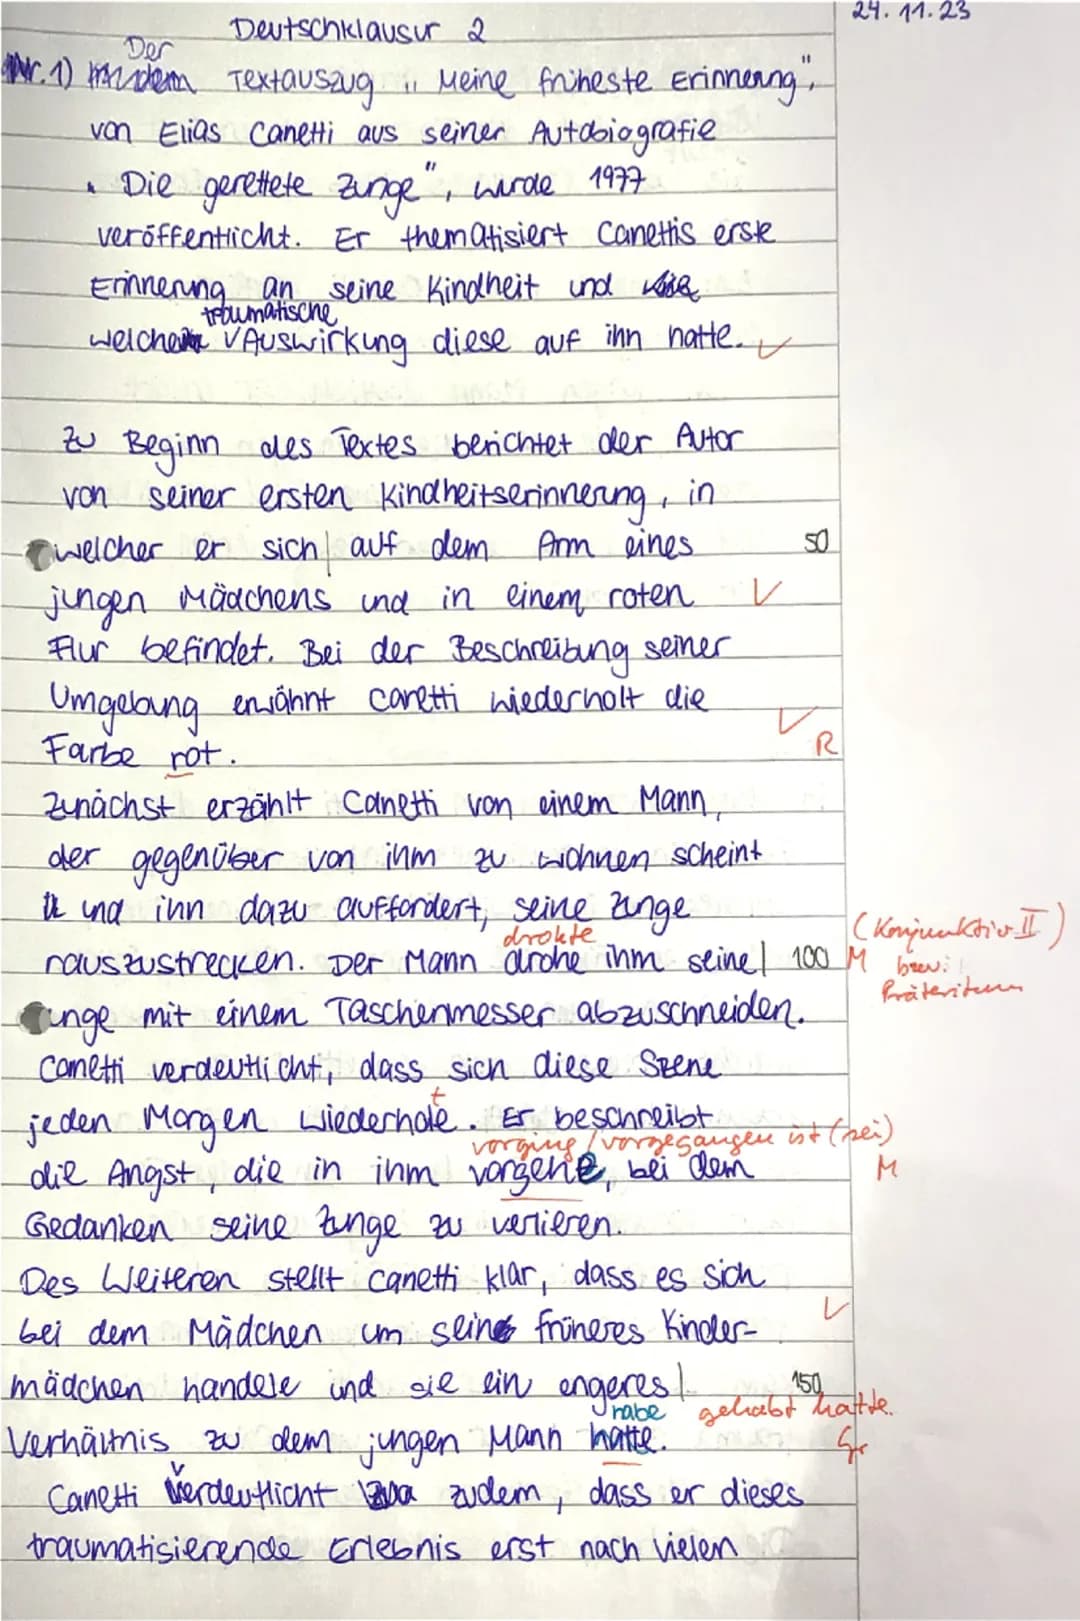 24.11.23
Deutschklausur 2
Der
Nr. 1) Textauszug „Meine früheste Erinnerung",
von Elias Canetti aus seiner Autobiografie
„Die gerettete Zunge", wurde 1977
veröffentlicht. Er thematisiert Canettis erste
Erinnerung an seine Kindheit und
traumatische
welche Auswirkung diese auf ihn hatte. ✓
Zu Beginn des Textes berichtet der Autor
von seiner ersten Kindheitserinnerung, in
welcher er sich | auf dem Arm eines 50
jungen Mädchens und in einem roten ✓
Flur befindet. Bei der Beschreibung seiner
Umgebung erwähnt Canetti wiederholt die ✓
Farbe rot. R
Zunächst erzählt Canetti von einem Mann,
der gegenüber von ihm zu wohnen scheint
und ihn dazu auffordert, seine Zunge
drohte (Konjunktiv II)
rauszustrecken. Der Mann drohe ihm seine | 100 M bzw.
Präteritum
Zunge mit einem Taschenmesser abzuschneiden.
Canetti verdeutlicht, dass sich diese Szene
t
jeden Morgen wiederhole. Er beschreibt
vorging / vorgegangen ist (sei)
die Angst, die in ihm vorgehe, bei dem M
Gedanken seine Zunge zu verlieren.
Des Weiteren stellt Canetti klar, dass es sich
bei dem Mädchen um sein früheres Kinder- ✓
mädchen handele und sie ein engeres | 150
habe gehabt hatte.
Verhältnis zu dem jungen Mann hatte. Gr
Canetti verdeutlicht zudem, dass er dieses
traumatisierende Erlebnis erst nach vielen